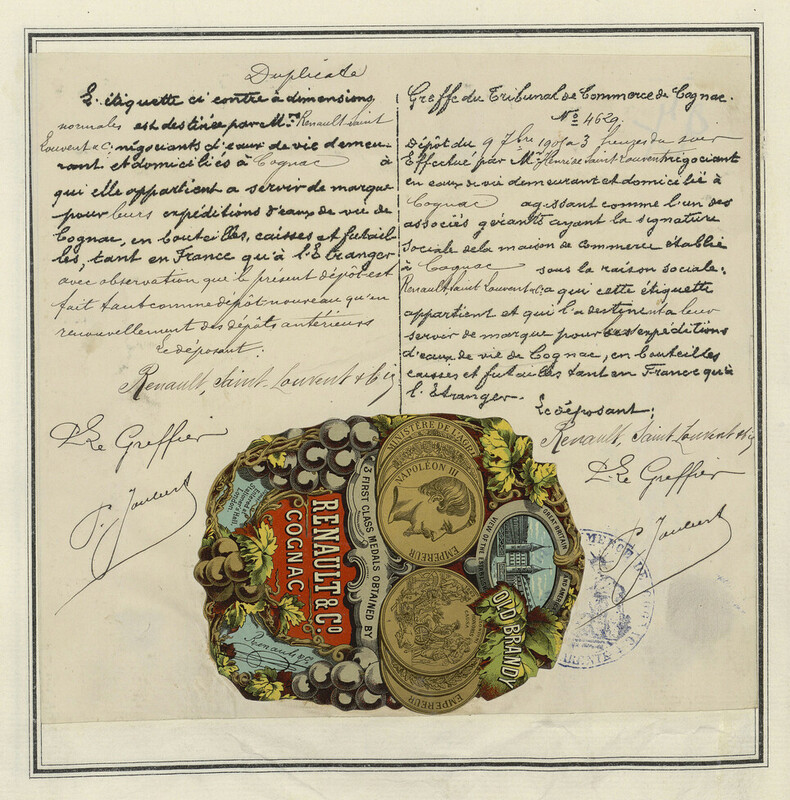 Duplicata
L'étiquette ci contre à dimensions
normales est destinée par Mrs Renault, Saint
Louvent & Cie négociants d'eaux de vie demeu-
rant et domiciliés à Cognac à
qui elle appartient a servir de marque
pour leurs expéditions d'eaux de vie de
Cognac, en bouteilles, caisses et futail
les, tant en France qu'à l'Etranger
avec observation que le présent dépôt est
fait tant comme dépôt nouveau qu'en
renouvellement des dépôts antérieurs
Le déposant:
Renault, Saint-Louvent & Cie
P. Le Greffier
Greffe du Tribunal de Commerce de Cognac
No 4629.
Dépôt du 9 7bre 1901 à 3 heures du soir
Effectué par Mr Henri de Saint Louvent négociant
en eaux de vie demeurant et domicilié à
Cognac agissant comme l'un des
associés gérants ayant la signature
sociale de la maison de Commerce établie
à Cognac sous la raison sociale:
Renault, Saint Louvent & Cie à qui cette étiquette
appartient et qui l'a destinent a leur
servir de marque pour ses expéditions
d'eaux de vie de Cognac, en bouteilles
caisses et futailles tant en France qu'à
l'Etranger.
Le déposant:
Renault, Saint Louvent & Cie
P. Le Greffier
RENAULT & Co
COGNAC
3 FIRST CLASS MEDALS OBTAINED BY
MINISTÈRE DE L'AGR
NAPOLÉON III
EMPEREUR
EMPEREUR
GREAT BRITAIN
VIEW OF THE
OLD BRANDY
Entered at
Stationer's Hall,
London
Renault & Co